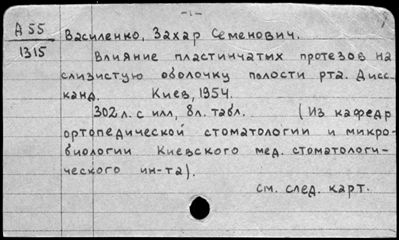 -1-
А 55
1315
Василенко, Захар Семенович.
Влияние пластинчатых протезов на
слизистую оболочку полости рта. Дисс.
канд. Киев, 1954.
302 л. с илл, 8л. табл. (Из кафедр
ортопедической стоматологии и микро-
биологии Киевского мед. стоматологи-
ческого ин-та).
см. след. карт.